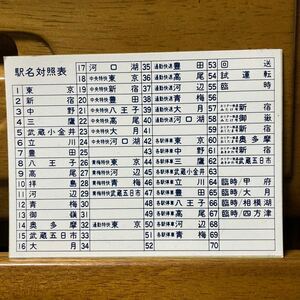 駅名対照表
1 東京
2 新宿
3 中野
4 三鷹
5 武蔵小金井
6 立川
7 豊田
8 八王子
9 高尾
10 拝島
11 河辺
12 青梅
13 御嶽
14 奥多摩
15 武蔵五日市
16 大月
17 河口湖
18 中央特快 東京
19 中央特快 新宿
20 中央特快 豊田
21 中央特快 八王子
22 中央特快 高尾
23 中央特快 大月
24 中央特快 河口湖
25
26 青梅特快 東京
27 青梅特快 河辺
28 青梅特快 青梅
29
30
31
32 通勤特快 東京
33
34
35 通勤快速 豊田
36 通勤快速 高尾
37 通勤快速 河辺
38 通勤快速 青梅
39
40
41 各駅停車 東京
42 各駅停車 新宿
43 各駅停車 中野
44 各駅停車 三鷹
45 各駅停車 武蔵小金井
46 各駅停車 立川
47 各駅停車 豊田
48 各駅停車 八王子
49 各駅停車 高尾
50 各駅停車 河辺
51 各駅停車 青梅
52
53 回送
54 試運転
55 臨時
56
57
58 新宿
59 新宿
60 奥多摩
61 奥多摩
62 武蔵五日市
63
64 臨時/甲府
65 臨時/大月
66 臨時/相模湖
67 臨時/四方津
68
69
70